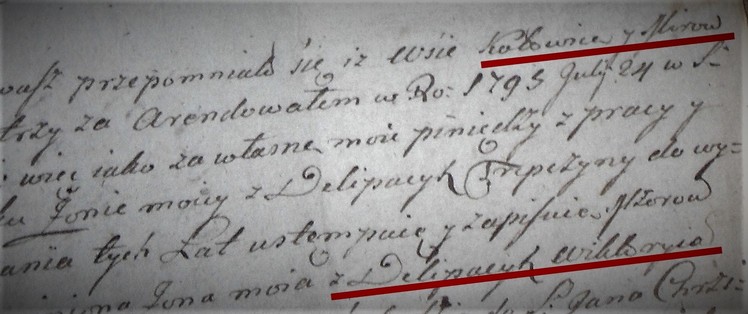 wasz przepomniało się iz wsie Kotowice y Mirow
trzy za Arendowałem w Ro: 1795 July 24 w S:
i więc iako za własne moie piniędzy z pracy y
Zonie mocy z Delipacyh Trpczyny do wy=
ania tych Lat ustempuię y zapisuie Mżorow
niona Zona moia z Delipacyh Wiktoryia
S. Jana Chrzci